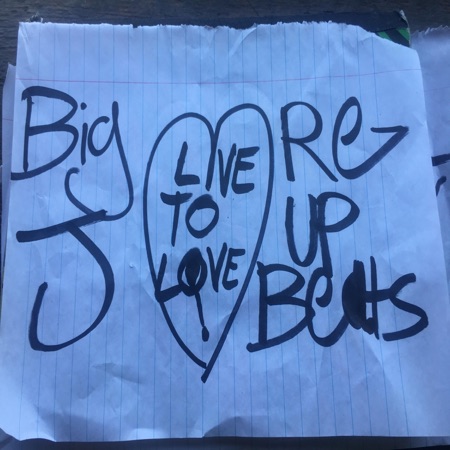 Big
J
LIVE
TO
LOVE
RE
UP
Beats